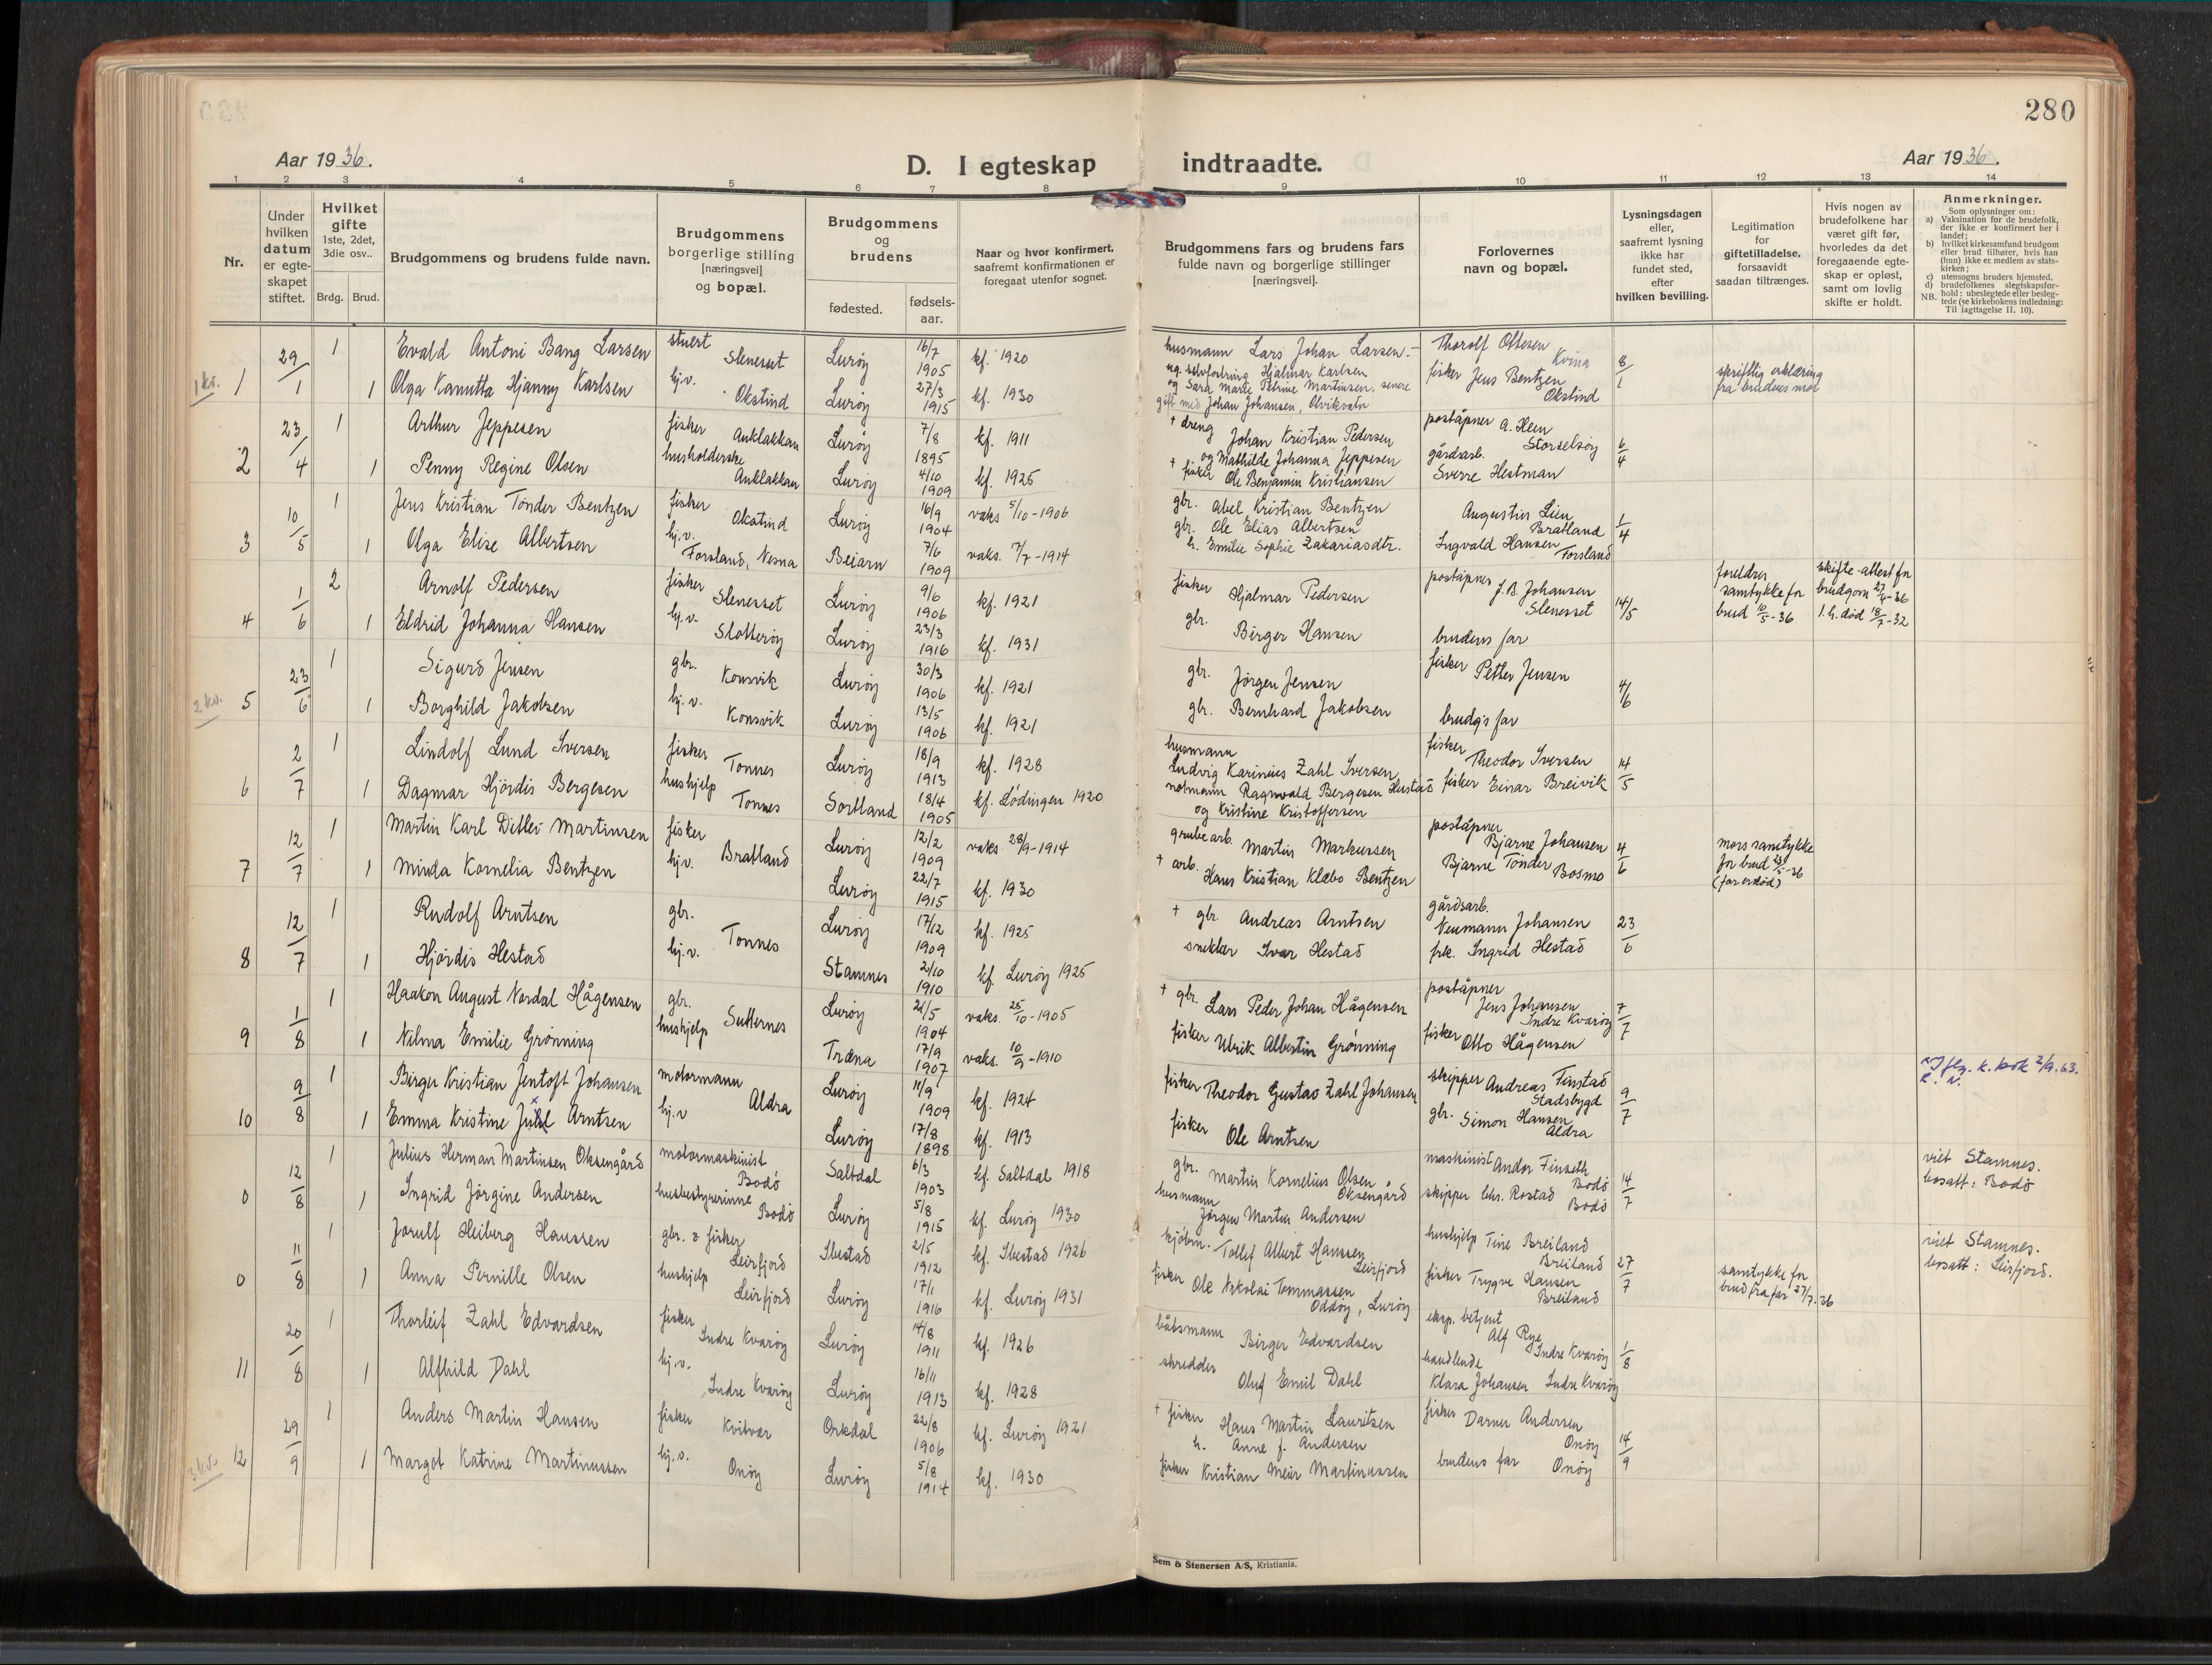 280
Aar 1936.
D. I egteskap indtraadte.
Aar 1936.
1 2 3 4 5 6 7 8 9 10 11 12 13 14
Nr.
Under hvilken datum er egteskapet stiftet.
Hvilket gifte 1ste, 2det, 3die osv..
Brdg. Brud.
Brudgommens og brudens fulde navn.
Brudgommens borgerlige stilling [næringsvei] og bopæl.
Brudgommens og brudens
fødested.
fødselsaar.
Naar og hvor konfirmert, saafremt konfirmationen er foregaat utenfor sognet.
Brudgommens fars og brudens fars fulde navn og borgerlige stillinger [næringsvei].
Forlovernes navn og bopæl.
Lysningsdagen eller, saafremt lysning ikke har fundet sted, efter hvilken bevilling.
Legitimation for giftetilladelse, forsaavidt saadan tiltrænges.
Hvis nogen av brudefolkene har været gift før, hvorledes da det foregaaende egteskap er opløst, samt om lovlig skifte er holdt.
Anmerkninger.
Som oplysninger om:
a) Vaksination for de brudefolk, der ikke er konfirmert her i landet;
b) hvilket kirkesamfund brudgom eller brud tilhører, hvis han (hun) ikke er medlem av statskirken;
c) utensogns bruders hjemsted.
d) brudefolkenes slegtskapsforhold: ubeslegtede eller beslegtede (se kirkebokens indledning: Til iagttagelse II. 10).
NB.
1 kv. 1 29/1 1 Evald Antoni Bang Larsen stuert Slenesset Lurøy 16/7 1905 kf. 1920 husmann Lars Johan Larsen.- Thorolf Ottesen Kvina 8/1 skriftlig erklæring
1 Olga Kanutta Hjanny Karlsen hj.v. Okstind Lurøy 27/3 1915 kf. 1930 ug. selvfostring Hjalmar Karlsen fisker Jens Bentzen Okstind fra brudens mor
og Sara Marie Petrine Martinsen, senere
gift med Johan Johansen, Alvikvatn
2 23/4 1 Arthur Jeppesen fisker Auklakkan Lurøy 7/8 1895 kf. 1911 † dreng Johan Kristian Pedersen poståpner A. Hem Storselsøy 6/4
og Mathilde Johanna Jeppesen
1 Penny Regine Olsen husholderske Auklakkan Lurøy 4/10 1909 kf. 1925 † fisker Ole Benjamin Kristiansen gårdsarb. Sverre Hestman
3 10/5 1 Jens Kristian Tønder Bentzen fisker Okstind Lurøy 16/9 1904 vaks 5/10-1906 gbr. Abel Kristian Bentzen Augustin Lien Bratland 1/4
1 Olga Elise Albertsen hj.v. Forsland, Nesna Beiarn 7/6 1909 vaks. 17/7-1914 gbr. Ole Elias Albertsen Ingvald Hansen Forsland
h. Emilie Sophie Zakariasdtr.
4 1/6 2 Arnolf Pedersen fisker Slenesset Lurøy 9/6 1906 kf. 1921 fisker Hjalmar Pedersen poståpner J.B. Johansen Slenesset 14/5 foreldres samtykke for brud 10/5-36 skifte-attest for brudgom 27/4-36 1. h. død 18/7-32
1 Eldrid Johanna Hansen hj.v. Slotterøy Lurøy 23/3 1916 kf. 1931 gbr. Birger Hansen brudens far
2 kv. 5 23/6 1 Sigurd Jensen gbr. Konsvik Lurøy 30/3 1906 kf. 1921 gbr. Jørgen Jensen fisker Petter Jensen 4/6
1 Borghild Jakobsen hj.v. Konsvik Lurøy 13/5 1906 kf. 1921 gbr. Bernhard Jakobsen brudg's far
6 2/7 1 Lindolf Lund Iversen fisker Tonnes Lurøy 18/9 1913 kf. 1928 husmann Ludvig Karinius Zahl Iversen fisker Theodor Iversen 14/5
1 Dagmar Hjördis Bergesen hushjelp Tonnes Sortland 18/4 1905 kf. Lödingen 1920 notmann Ragnvald Bergesen Hustad fisker Einar Breivik
og Kristine Kristoffersen
7 12/7 1 Martin Karl Ditlev Martinsen fisker Bratland Lurøy 12/2 1909 vaks 28/9-1914 grubearb. Martin Markussen poståpner Bjarne Johansen 4/6 mors samtykke for brud 23/5-36 (far er død)
1 Minda Kornelia Bentzen hj.v. Lurøy 22/7 1915 kf. 1930 † arb. Hans Kristian Klæbo Bentzen Bjarne Tønder Bosmo
8 12/7 1 Rudolf Arntsen gbr. Tonnes Lurøy 17/12 1909 kf. 1925 † gbr. Andreas Arntsen gårdsarb. Neumann Johansen 23/6
1 Hjördis Hestad hj.v. Stamnes 2/10 1910 kf. Lurøy 1925 snekker Ivar Hestad frk. Ingrid Hestad
9 1/8 1 Haakon August Nordal Hågensen gbr. Lurøy 21/5 1904 vaks. 25/10-1905 † gbr. Lars Peder Johan Hågensen poståpner Jens Johansen Indre Kvarøy 7/7
1 Nilma Emilie Grønning hushjelp Træna 17/9 1907 vaks. 10/9-1910 fisker Ulrik Albertin Grønning fisker Otto Hågensen
10 9/8 1 Birger Kristian Jentoft Johansen motormann Aldra Lurøy 11/9 1909 kf. 1924 fisker Theodor Gustav Zahl Johansen skipper Andreas Finstad Stadsbygd 9/7 k. bok 2/9.63.
1 Emma Kristine Arntsen hj.v Lurøy 17/8 1898 kf. 1913 fisker Ole Arntsen gbr. Simon Hansen Aldra
0 12/8 1 Julius Herman Martinsen Oksengård motormaskinist Bodö Saltdal 6/3 1903 kf. Saltdal 1918 gbr. Martin Kornelius Olsen Oksengård maskinist Andor Finseth Bodö 14/7 viet Stamnes.
1 Ingrid Jörgine Andersen husbestyrerinne Bodö Lurøy 5/8 1915 kf. Lurøy 1930 husmann Jörgen Martin Andersen skipper Chr. Rostad Bodö bosatt: Bodö
0 11/8 1 Jorulf Heiberg Hanssen gbr. & fisker Leirfjord Ibestad 2/5 1912 kf. Ibestad 1926 kjöbm. Tollef Albert Hanssen Leirfjord hushjelp Tine Breiland Breiland 27/7 viet Stamnes.
1 Anna Pernille Olsen hushjelp Leirfjord Lurøy 17/1 1916 kf. Lurøy 1931 fisker Ole Nikolai Tommassen Oddøy, Lurøy fisker Trygve Hansen Breiland samtykke for brud fra far 27/7.36 bosatt: Leirfjord.
11 20/8 1 Thorleif Zahl Edvardsen fisker Indre Kvarøy Lurøy 14/8 1911 kf. 1926 båtsmann Birger Edvardsen eksp. betjent Alf Rye Indre Kvarøy 1/8
1 Alfhild Dahl hj.v. Indre Kvarøy Lurøy 16/11 1913 kf. 1928 skredder Oluf Emil Dahl handlende Klara Johansen Indre Kvarøy
3 kv. 12 29/9 1 Anders Martin Hansen fisker Kvitvær Orkdal 22/8 1906 kf. Lurøy 1921 † fisker Hans Martin Lauritsen fisker Andersen Onøy 14/9
h. Anne f. Andersen
1 Margot Katrine Martinussen hj.v. Onøy Lurøy 5/8 1914 kf. 1930 fisker Kristian Meier Martinussen brudens far Onøy
Sem & Stenersen A/S, Kristiania.